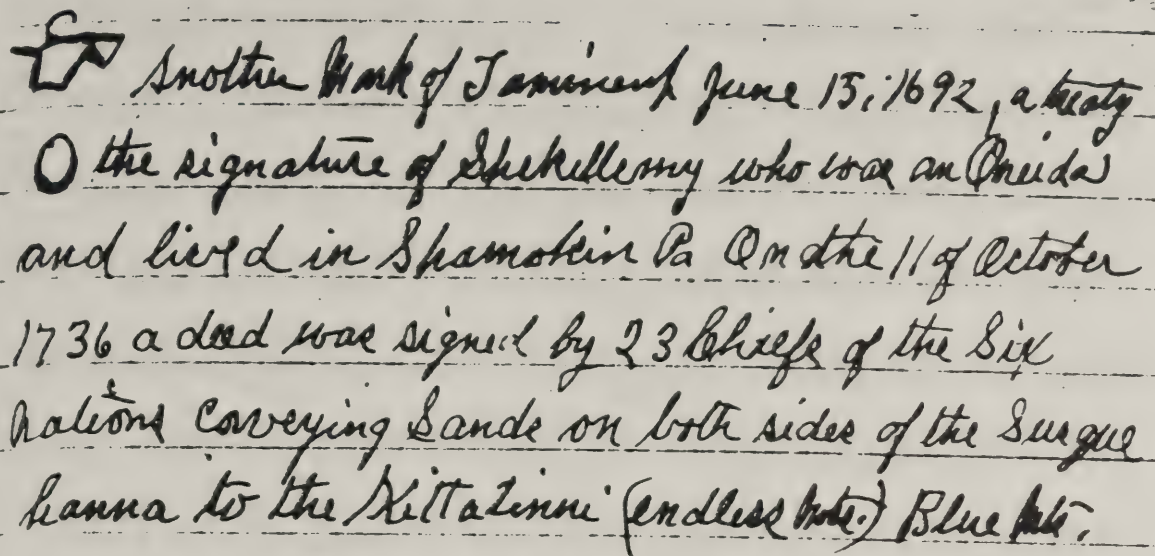 Another Mark of Taminent June 15, 1692, a treaty
the signature of Shekellemy who was an Oneida
and lived in Shamokin Pa On the 11 of October
1736 a deed was signed by 23 Chiefs of the Six
Nations Conveying Lands on both sides of the Susque
hanna to the Kittatinni (endless Mts.) Blue Mts.